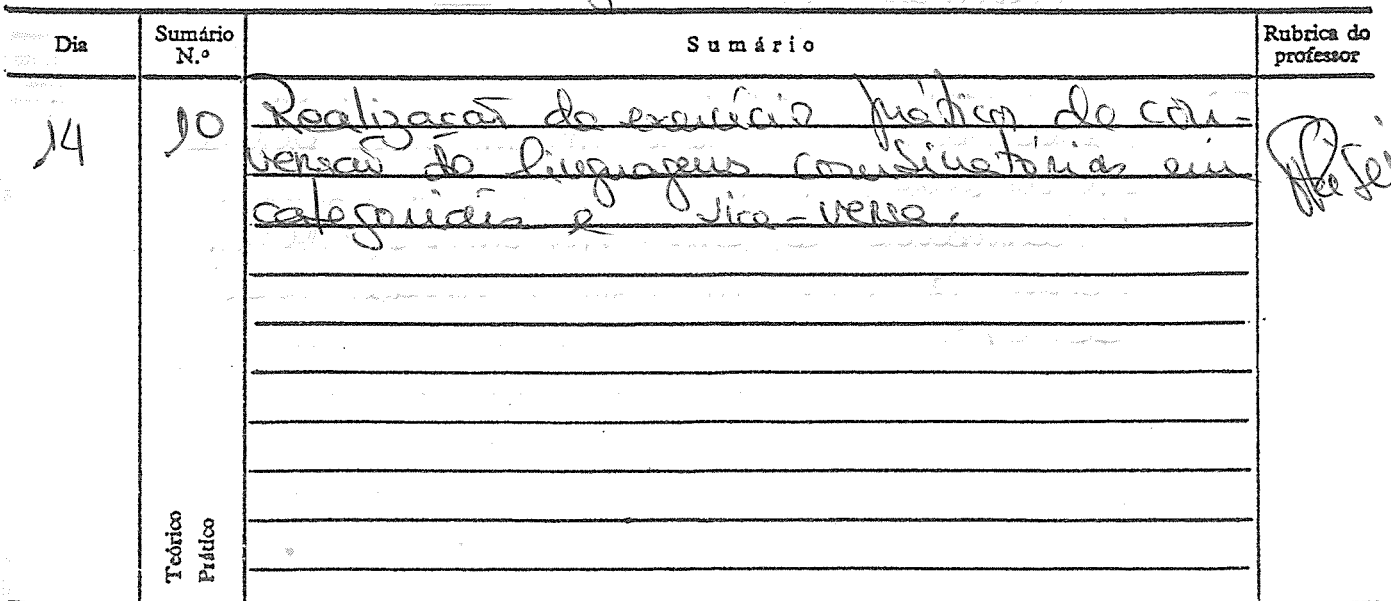 Dia Sumário N.º Sumário Rubrica do professor
14 10 Realização de exercício prático de con-
versão de linguagens combinatórias em
categoriais e vice-versa.
Teórico
Prático